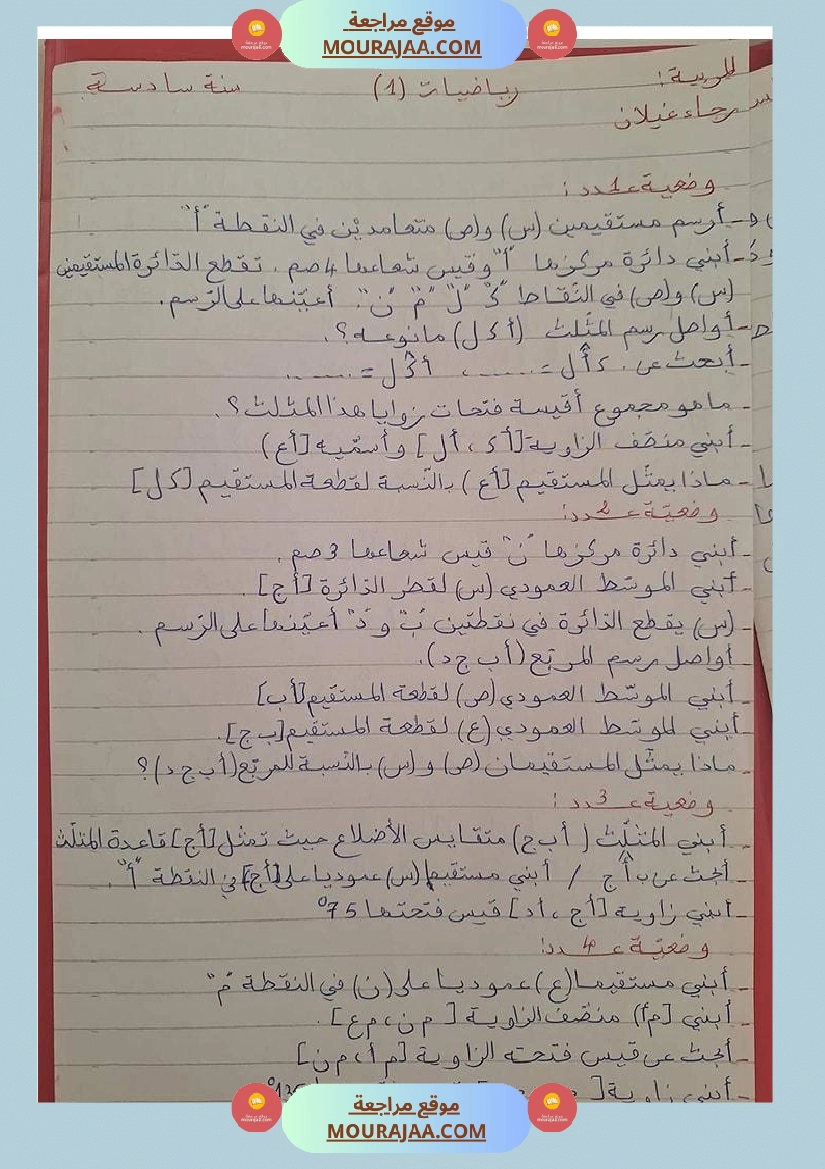 موقع مراجعة
MOURAJAA.COM
للمربية:
رجاء غيلان
رياضيات (1)
سنة سادسة
وضعية عـ1ـدد:
أرسم مستقيمين (س) و(ص) متعامدين في النقطة "أ"
- أبني دائرة مركزها "أ" وقيس شعاعها 4 صم. تقطع الدّائرة المستقيمين
(س) و(ص) في النّقاط "ك" "ل" "م" "ن". أعيّنها على الرّسم.
- أواصل رسم المثلث (أ ك ل) ما نوعه؟.
- أبحث عن. ك أ ل = ........ ، أ ك ل = ........
- ما هو مجموع أقيسة فتحات زوايا هذا المثلث؟.
- أبني منصّف الزاوية [أ ك ، أ ل] وأسمّيه [أع)
- ماذا يمثّل المستقيم [أع) بالنّسبة لقطعة المستقيم [ك ل]
وضعيّة عـ2ـدد:
- أبني دائرة مركزها "ن" قيس شعاعها 3 صم.
- أبني الموسّط العمودي (س) لقطر الدّائرة [أ ج].
- (س) يقطع الدّائرة في نقطتين "ب" و "د" أعيّنها على الرّسم.
- أواصل رسم المربّع (أ ب ج د).
- أبني الموسّط العمودي (ص) لقطعة المستقيم [أب]
- أبني الموسّط العمودي (ع) لقطعة المستقيم [ب ج].
- ماذا يمثّل المستقيمان (ص) و (س) بالنّسبة للمربّع (أ ب ج د)؟
وضعية عـ3ـدد:
- أبني المثلّث (أ ب ج) متقايس الأضلاع حيث تمثّل [أج] قاعدة المثلّث
- أبحث عن ب أ ج / أبني مستقيما (س) عموديا على [أج] في النقطة "أ".
- أبني زاوية [أج ، أد] قيس فتحتها 75°
وضعيّة عـ4ـدد:
- أبني مستقيما (ع) عموديا على (ن) في النقطة "م"
- أبني [م أ) منصّف الزاوية [م ن ، م ع].
- أبحث عن قيس فتحة الزاوية [م أ ، م ن]
- أبني زاوية [
موقع مراجعة
MOURAJAA.COM